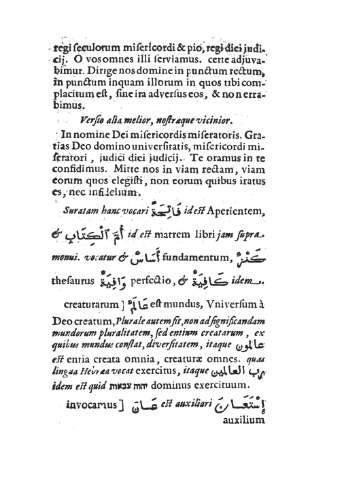 regi seculorum misericordi & pio, regi diei judi-
cij. O vos omnes illi serviamus. certe adjuva-
bimur. Dirige nos domine in punctum rectum,
in punctum inquam illorum in quos tibi com-
placitum est, sine ira adversus eos, & non erra-
bimus.
Versio alia melior, nostræque vicinior.
In nomine Dei misericordis miseratoris. Gra-
tias Deo domino universitatis, misericordi mi-
seratori, judici diei judicij. Te oramus in te
confidimus. Mitte nos in viam rectam, viam
eorum quos elegisti, non eorum quibus iratus
es, nec infidelium.
Suratam hanc vocari فَاتِحَةٌ id est Aperientem,
& أُمُّ الْكِتَابِ id est matrem libri jam supra
monui. vocatur & أَسَاسٌ fundamentum, كَنْزٌ
thesaurus وَافِيَةٌ perfectio, & كَافِيَةٌ idem
creaturarum ] عَالَمٌ est mundus, Vniversum à
Deo creatum, Plurale autem fit, non ad significandam
mundorum pluralitatem, sed entium creatarum, ex
quibus mundus constat, diversitatem, itaque عالمون
est entia creata omnia, creaturæ omnes. quas
lingua Hebræa vocat exercitus, itaque رب العالمين
idem est quid יהוה צבאות dominus exercituum.
invocamus ] عَانَ est auxiliari إِسْتَعَانَ
auxilium